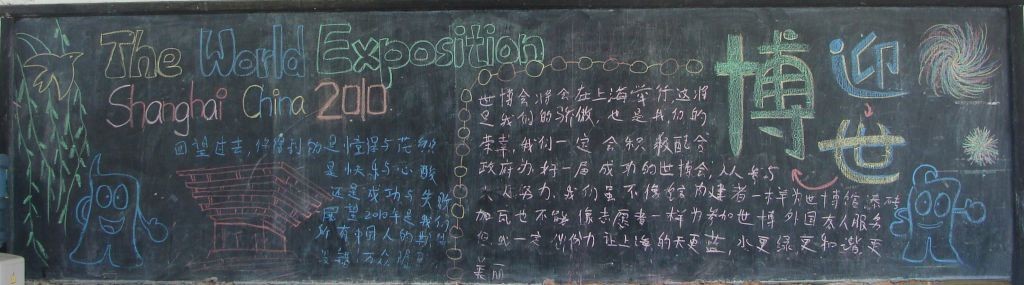 The World Exposition
Shanghai China 2010
迎
世
博
回望过去,你得到的是懂得与
是快乐与心酸
还是成功与失败
展望2010年是我们
所有中国人的
世博会将会在上海举行这将
是我们的骄傲,也是我们的
荣幸,我们一定会积极配合
政府办好一届成功的世博会,从
努力,我们虽不像建者一样为世博馆添砖
加瓦也不能像志愿者一样为参加世博外国友人服务
但我一定让上海的天更蓝,水更绿更和谐更
美丽